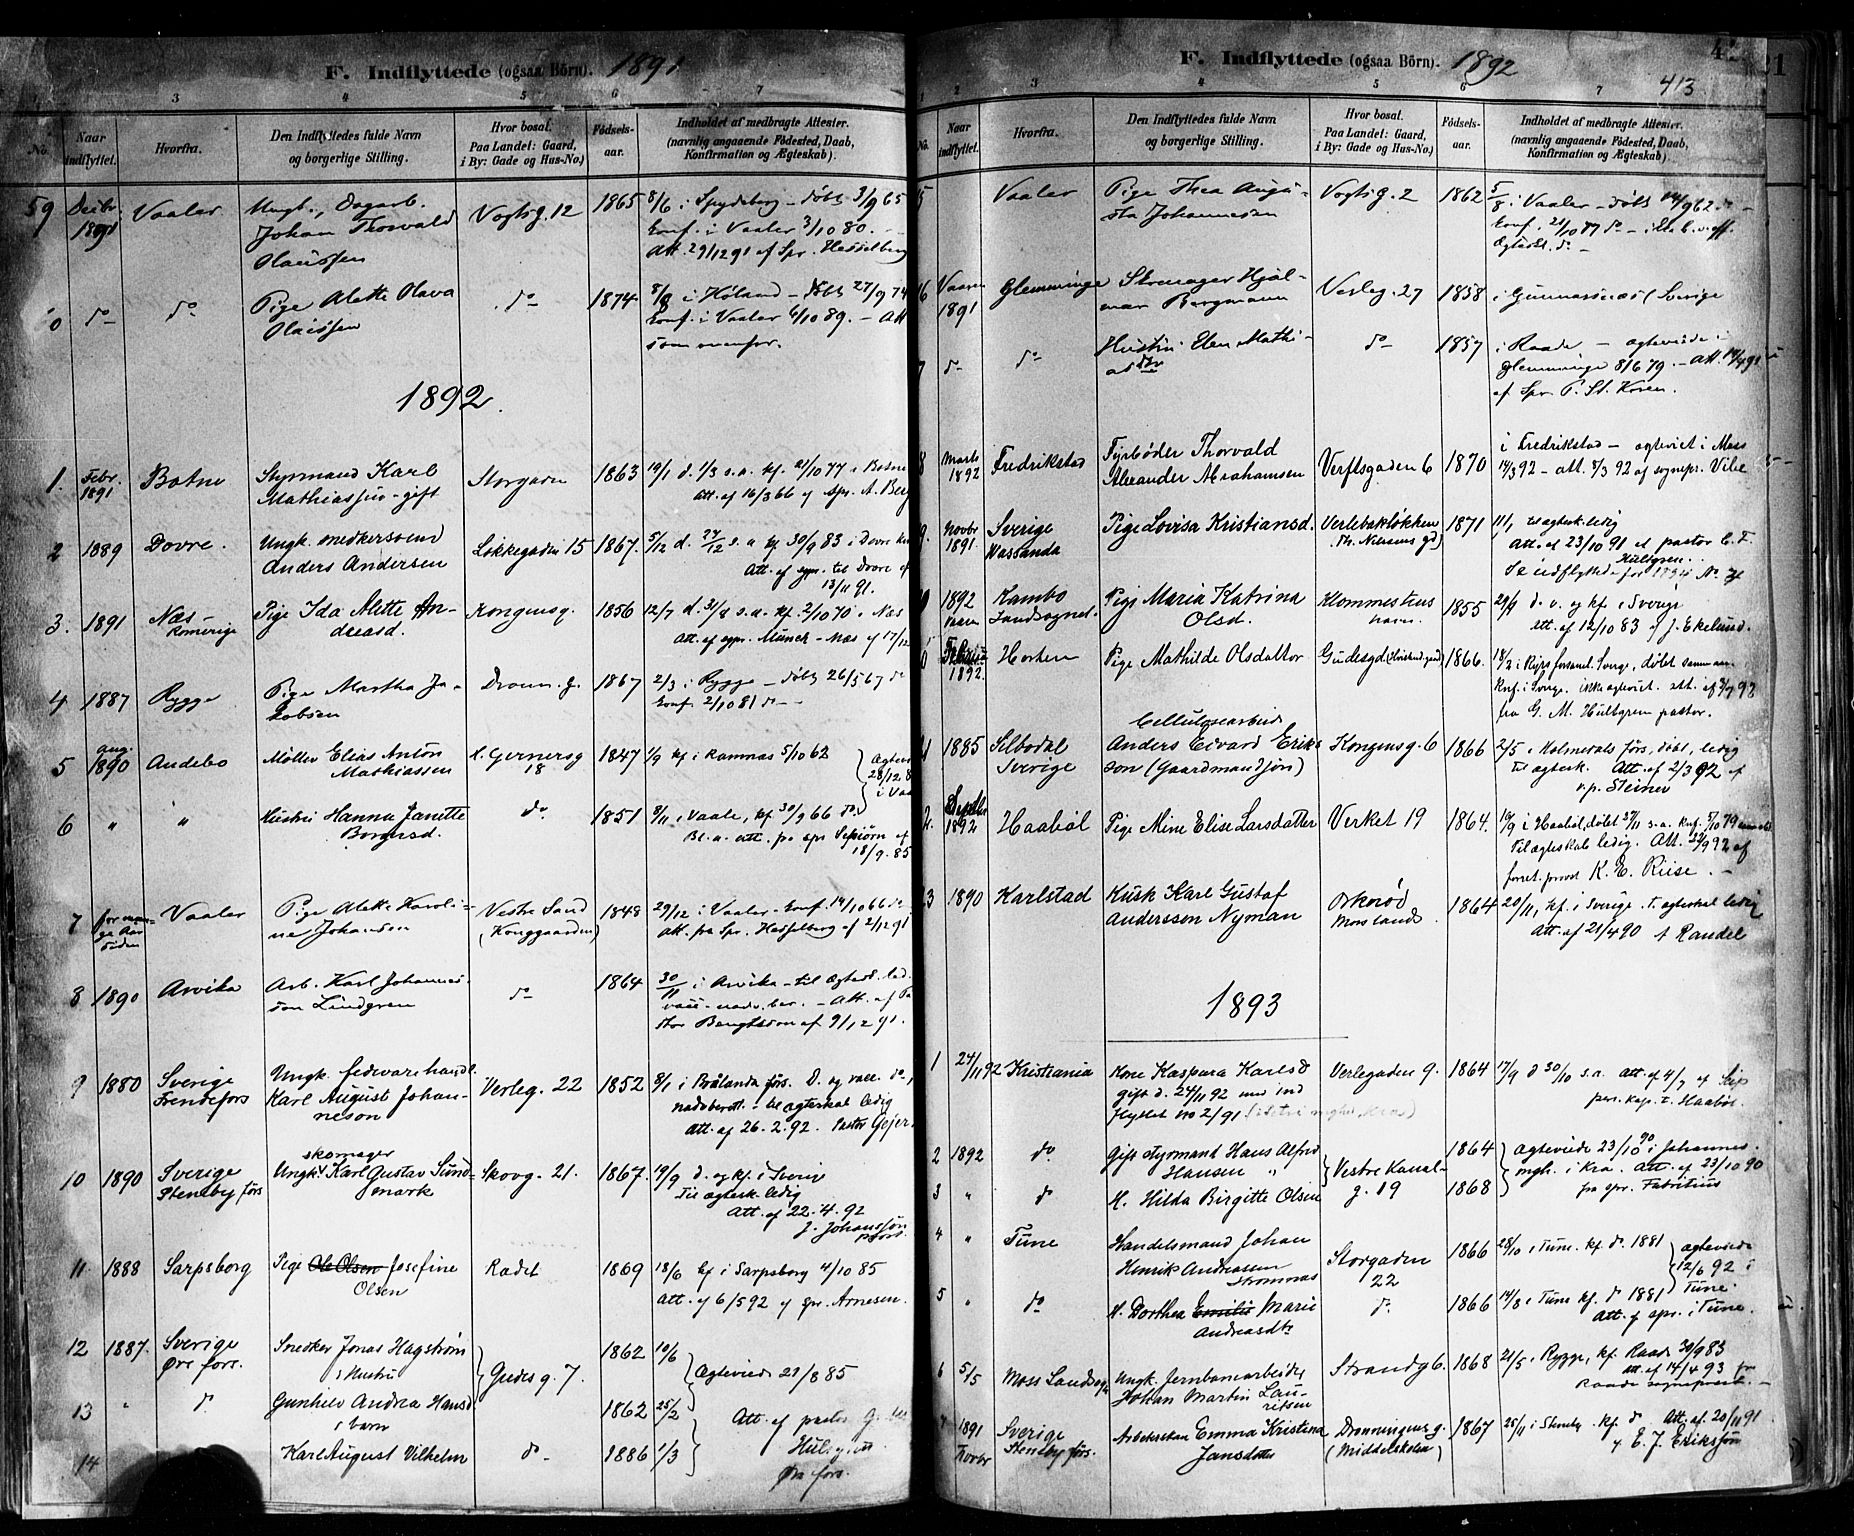 F. Indflyttede (ogsaa Börn). 1891
1 3 4 5 6 7
No. Naar indflyttet. Hvorfra. Den Indflyttedes fulde Navn og borgerlige Stilling. Hvor bosat. Paa Landet: Gaard, i By: Gade og Hus-No.) Födsels-aar. Indholdet af medbragte Attester. (navnlig angaaende Födested, Daab, Konfirmation og Ægteskab).
59 Decbr 1891 Vaaler Ungk., Dagarb. Johan Thorvald Olaussen Vogtsg. 12 1865 8/6 i Spydeberg – döbt 3/9 65
konf. i Vaaler 3/10 80.
Att. 29/12 91 af Spr. Hesselberg
do do Pige Alette Olava Olaussen do 1874 8/8 i Höland – döbt 27/9 74
konf. i Vaaler 6/10 89. – Att
som ovenfor.
1892
1. Febr. 1891 Botne Styrmand Karl Mathiassen – gift Storgaden 1863 19/1 d. 1/3 s.a. kf. 21/10 77 i Botne
Att. af 16/3 66 af spr. A. Berg
2 1889 Dovre. Ungk. snedkersvend Anders Andersen Løkkegaden 15 1867. 5/12 d. 27/12 s.a. kf. 30/9 83 i Dovre
Att. af spr. til Dovre af
13/11 91.
3. 1891 Næs – Romerige Pige Ida Alette Andreasd. Kongensg. 1856 12/7 d. 31/8 s.a. kf. 2/10 70 i Næs
Att. af spr. Münch – Næs af 17/12
4 1887 Rygge Pige Martha Jakobsen Dronn. g. 1867 2/3 i Rygge – döbt 26/5 67 do
konf. 2/10 81 do –
5 aug. 1890 Andebo Møller Elias Anton Mathiassen H. Gernersg 18 1847 1/9 kf i Ramnæs 5/10 62
6 " " Hustru Hanna Janette Borgersd. do 1851 8/11 i Vaale, kf. 30/9 66 do.
Bl. a. att. fra spr Schiørn af
18/9. 85
7 for mange Aar siden Vaaler Pige Alette Karoline Johansen Vestre Sand (Konggaarden) 1848 29/12 i Vaaler – konf. 14/10 66 do
att. fra Spr. Hesselberg af 2/12 91
8 1890 Arvika Arb. Karl Johannesson Lindgren do 1864 30/11 i Arvika – til Ægtesk. led.
vacc. – nadv. ber. – Att. af Pa
stor Bengtsson af 9/12 91.
9 1880 Sverige Frendefors Ungk. fedevarehandl. Karl August Johanneson Verleg. 22 1852 8/1 i Brålanda förs. D. og vacc. do,
nadvberett. – til ægteskab ledig
Att. af 26. 2. 92. Pastor Gejer
10 1890 Sverige Steneby förs Ungk. skomager Karl Gustav Sundmark Skovg. 21. 1867. 19/9 d. og kf. i Sverige
Til ægtesk. ledig
Att. af 22. 4. 92
J. Johansson
11. 1888 Sarpsborg Pige Ole Olsen Josefine Olsen Rådet 1869 18/6 kf i Sarpsborg 4/10 85
Att. af 6/5 92 af spr. Arnesen.
12 1887. Sverige Øre fors. Snedker Jonas Hagstrøm Gudes g. 7. 1862 10/6
Hustru Ægteviede 21/8 85
13 " do Gunhild Andrea Hansd 1862 25/2
Barn Att. af pastor G.
14 Karl August Vilhelm do. 1886 1/3 Hultgren
Øre fors.
F. Indflyttede (ogsaa Börn). 1892
413
1 2 3 4 5 6 7
No. Naar indflyttet. Hvorfra. Den Indflyttedes fulde Navn og borgerlige Stilling. Hvor bosat. Paa Landet: Gaard, i By: Gade og Hus-No.) Födsels-aar. Indholdet af medbragte Attester. (navnlig angaaende Födested, Daab, Konfirmation og Ægteskab).
5 Vaaler Pige Thea Augusta Johannesen Vogtsg. 2 1862 5/8 i Vaaler – döbt 14/9 62 do –
konf. 21/10 77 do –
Ægtesk. do –
16 Vaaren 1891 Glemminge Skomager Hjalmar Bergmann Verleg. 27 1858 i Gunnarsnæs (Sverige
7 do do Hustru Elen Mathiasdtr do 1857 i Raade – ægteviede i
Glemminge 8/6 79. – att. 14/4 91
af Spr. P. St. Koren.
8 Marts 1892 Fredrikstad Fyrbøder Thorvald Alexander Abrahamsen Verftsgaden 6 1870 i Fredrikstad – ægteviet i Moss
14/3 92 – att. 8/3 92 af sognepr. Vibe
9. Novbr 1891. Sverige Vassända Pige Lovisa Kristiansd. Verlebakløkken (Th. Nielsens gd) 1871 11/1, til ægtesk. ledig
Att. af 23/10 91 af pastor C. F.
Hultgren.
Se udflyttede for 1894 No. 74
1892 Kambo Landsognet. Pige Maria Katrina Olsd. Klommestens 1855 29/9 d. v. og kf. i Sverige
att. af 12/10 83 af J. Ekelund.
Februar 1892. Horten Pige Mathilde Olsdatter Gudesgd 1866. 18/2 i Ryrs forsaml. Sverge, döbt samme aar.
Knf. i Sverge. ikke ægteviet. att. af 3/9 92
fra G. M. Hultgren pastor.
1 1885 Silbodal Sverige Cellulosearbeid. Anders Edvard Eriksson (Gaardmandssøn) Kongensg. 6 1866 2/5 i Holmedals förs, döbt, ledig
til ægtesk. Att. af 2/3 92 af
v. p. Steiner
2. Septbr 1892 Haabøl Pige Mine Elise Larsdatter Verket 19 1864. 19/9 i Haabøl, døbt 27/11 s.a. Knf. 5/10 79
Til ægteskab ledig. Att. 22/9 92 af
forret. provst K. E. Riise. –
3 1890 Karlstad Kusk Karl Gustaf Andersson Nyman Orkerød Moss Lands. 1864 20/11, kf. i Sverige. T. ægteskab ledig
Att. af 21/4 90 af Randel
1893
1 24/11 92 Kristiania Kone Kaspara Karlsd Verlegaden 9. 1864 17/9 d 30/10 s.a. att. af 4/7 af
gift d. 24/11 92 med ind
flyttet No 2/91 pers. kap. t. Haabøl.
2 1892 do Gift styrmand Hans Alfred Hansen Vestre Kanalg. 19 1864 Ægteviede 23/10 90 i Johannes
3 " do H. Hilda Birgitte Olsen 1868 mgh. i Kra. Att. af 23/10 90
fra spr. Fabritius
4 " Tune Handelsmand Johan Henrik Andreassen Strømnæs Storgaden 22 1866 28/10 i Tune. kf. do 1881 ægteviede
12/6 92 i
5 " do H. Dorthea Emilie Marie Andreasdtr do. 1866 14/8 i Tune kf. do 1881 Tune
Att. af spr. i Tune.
6 5/5 Moss Landsogn Ungk. jernbanearbeider Johan Martin Lauritsen Strandg 6. 1868 21/5 i Rygge, kf. Raade 30/9 83
att. af 14/4 93 fra
Raade sognepræst. –
7 1891 Novbr Sverige Stenebyførs. Arbeiderskan Emma Kristina Jansdatter Dronningens g. (Middelskolen) 1867 25/11 i Steneby. kf. do Att. af. 20/11 91
af E. J. Eriksson